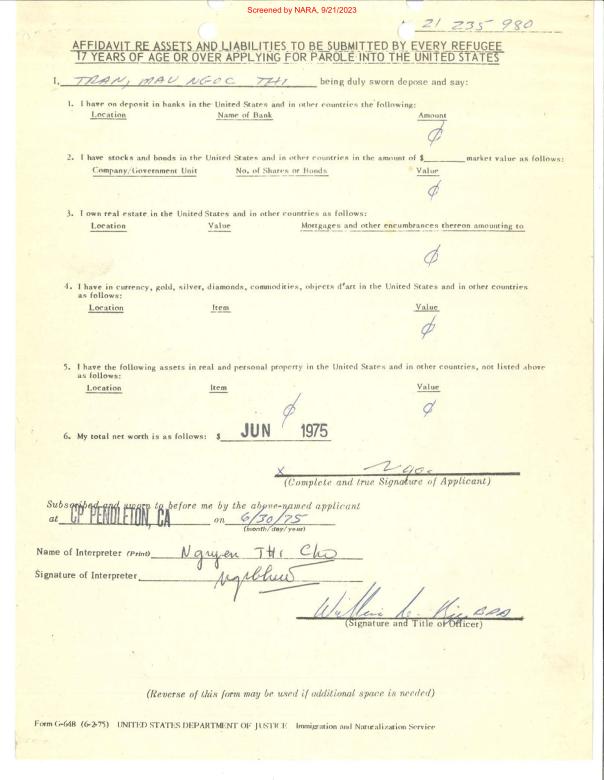 Screened by NARA, 9/21/2023
21 235 980
AFFIDAVIT RE ASSETS AND LIABILITIES TO BE SUBMITTED BY EVERY REFUGEE
17 YEARS OF AGE OR OVER APPLYING FOR PAROLE INTO THE UNITED STATES
I, TRAN, MAU NGOC THI being duly sworn depose and say:
1. I have on deposit in banks in the United States and in other countries the following:
Location Name of Bank Amount
∅
2. I have stocks and bonds in the United States and in other countries in the amount of $ market value as follows:
Company/Government Unit No. of Shares or Bonds Value
∅
3. I own real estate in the United States and in other countries as follows:
Location Value Mortgages and other encumbrances thereon amounting to
∅
4. I have in currency, gold, silver, diamonds, commodities, objects d'art in the United States and in other countries
as follows:
Location Item Value
∅
5. I have the following assets in real and personal property in the United States and in other countries, not listed above
as follows:
Location Item Value
∅ ∅
6. My total net worth is as follows: $ JUN 1975
x Ngoc
(Complete and true Signature of Applicant)
Subscribed and sworn to before me by the above-named applicant
at CP PENDLETON, CA on 6/30/75
(month/day/year)
Name of Interpreter (Print) Nguyen THI Cho
Signature of Interpreter
(Signature and Title of Officer)
(Reverse of this form may be used if additional space is needed)
Form G-648 (6-2-75) UNITED STATES DEPARTMENT OF JUSTICE Immigration and Naturalization Service